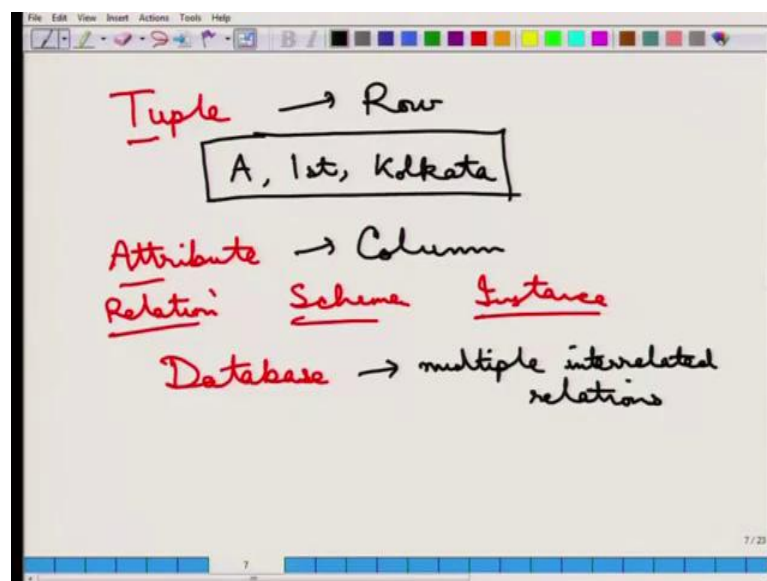 File Edit View Insert Actions Tools Help
Tuple → Row
A, 1st, Kolkata
Attribute → Column
Relation Scheme Instance
Database → multiple interrelated
relations
7/23
7